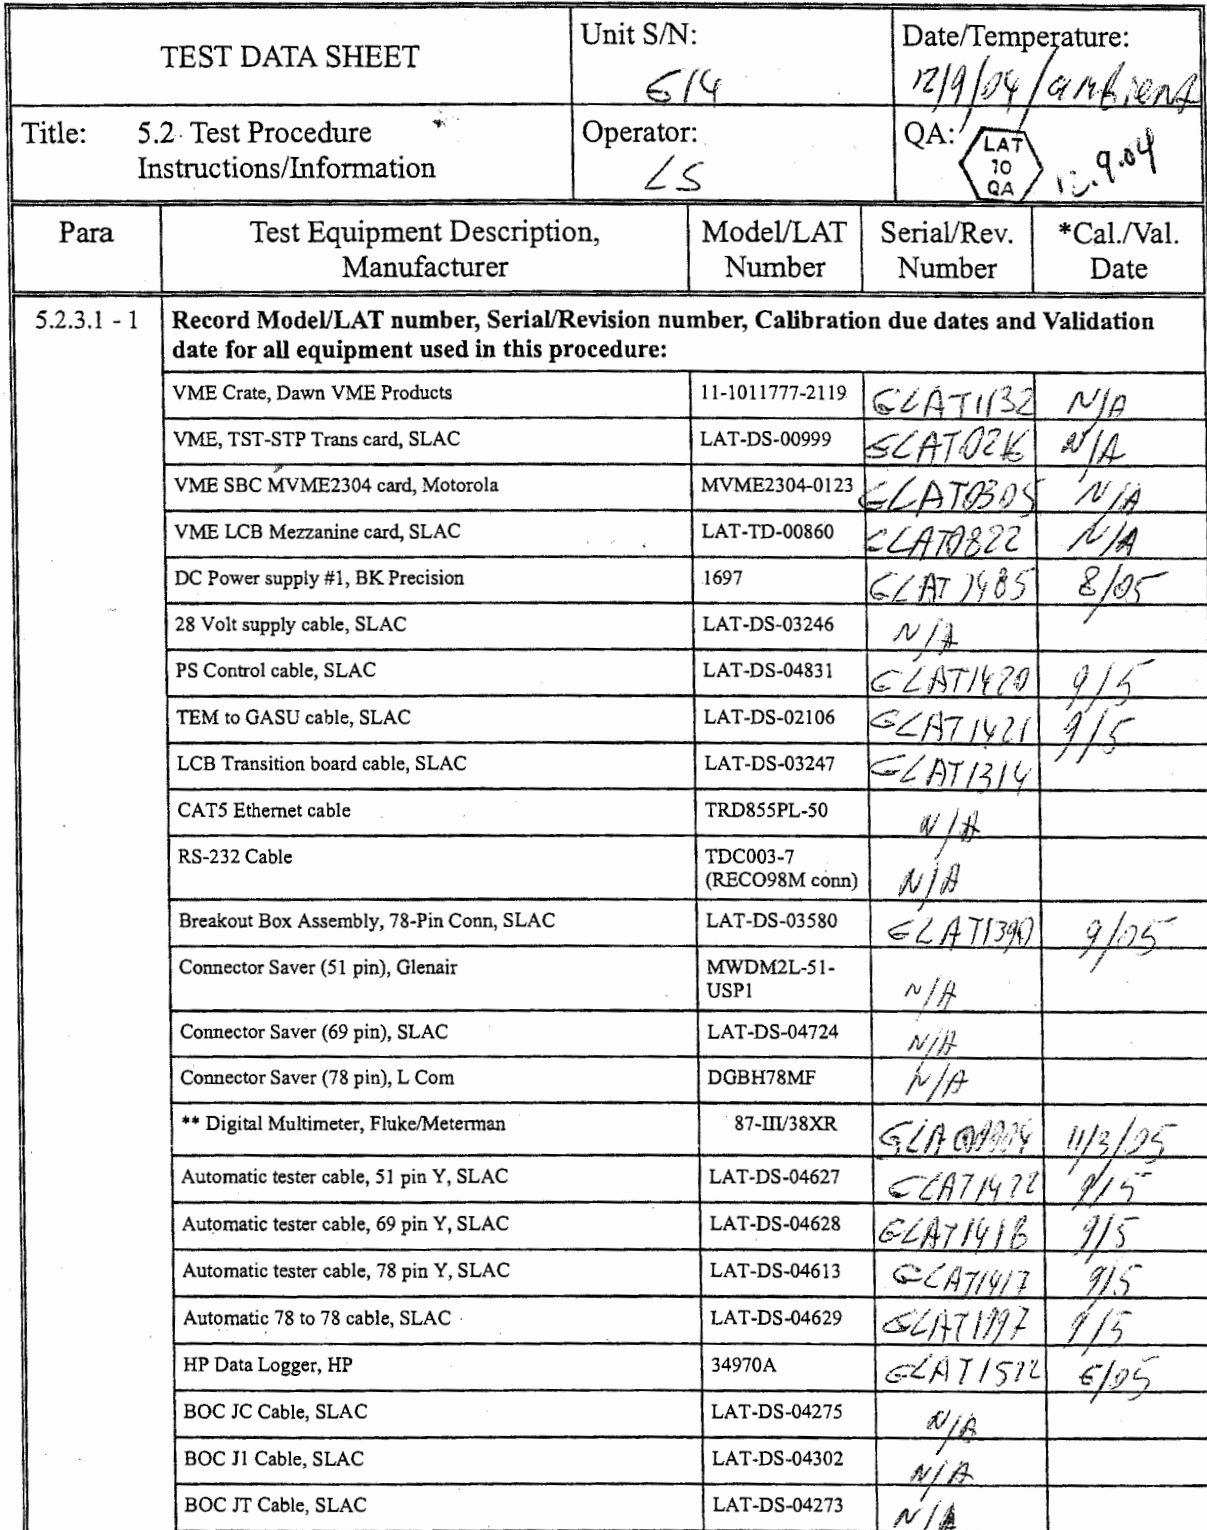 TEST DATA SHEET
Unit S/N:
614
Date/Temperature:
12/9/04 / ambient
Title: 5.2 Test Procedure
Instructions/Information
Operator:
LS
QA:
LAT
10
QA
12.9.04
Para
Test Equipment Description,
Manufacturer
Model/LAT
Number
Serial/Rev.
Number
*Cal./Val.
Date
5.2.3.1 - 1
Record Model/LAT number, Serial/Revision number, Calibration due dates and Validation
date for all equipment used in this procedure:
VME Crate, Dawn VME Products 11-1011777-2119 GLAT1132 N/A
VME, TST-STP Trans card, SLAC LAT-DS-00999 N/A
VME SBC MVME2304 card, Motorola MVME2304-0123 GLAT0305 N/A
VME LCB Mezzanine card, SLAC LAT-TD-00860 GLAT0822 N/A
DC Power supply #1, BK Precision 1697 GLAT 1485 8/05
28 Volt supply cable, SLAC LAT-DS-03246 N/A
PS Control cable, SLAC LAT-DS-04831 GLAT1420 9/5
TEM to GASU cable, SLAC LAT-DS-02106 GLAT1421 9/5
LCB Transition board cable, SLAC LAT-DS-03247 GLAT1314
CAT5 Ethernet cable TRD855PL-50 N/A
RS-232 Cable TDC003-7
(RECO98M conn) N/A
Breakout Box Assembly, 78-Pin Conn, SLAC LAT-DS-03580 GLAT1390 9/05
Connector Saver (51 pin), Glenair MWDM2L-51-
USP1 N/A
Connector Saver (69 pin), SLAC LAT-DS-04724 N/A
Connector Saver (78 pin), L Com DGBH78MF N/A
** Digital Multimeter, Fluke/Meterman 87-III/38XR 11/3/05
Automatic tester cable, 51 pin Y, SLAC LAT-DS-04627 GLAT1422 9/5
Automatic tester cable, 69 pin Y, SLAC LAT-DS-04628 GLAT1418 9/5
Automatic tester cable, 78 pin Y, SLAC LAT-DS-04613 GLAT1417 9/5
Automatic 78 to 78 cable, SLAC LAT-DS-04629 9/5
HP Data Logger, HP 34970A GLAT1522 6/05
BOC JC Cable, SLAC LAT-DS-04275 N/A
BOC J1 Cable, SLAC LAT-DS-04302 N/A
BOC JT Cable, SLAC LAT-DS-04273 N/A